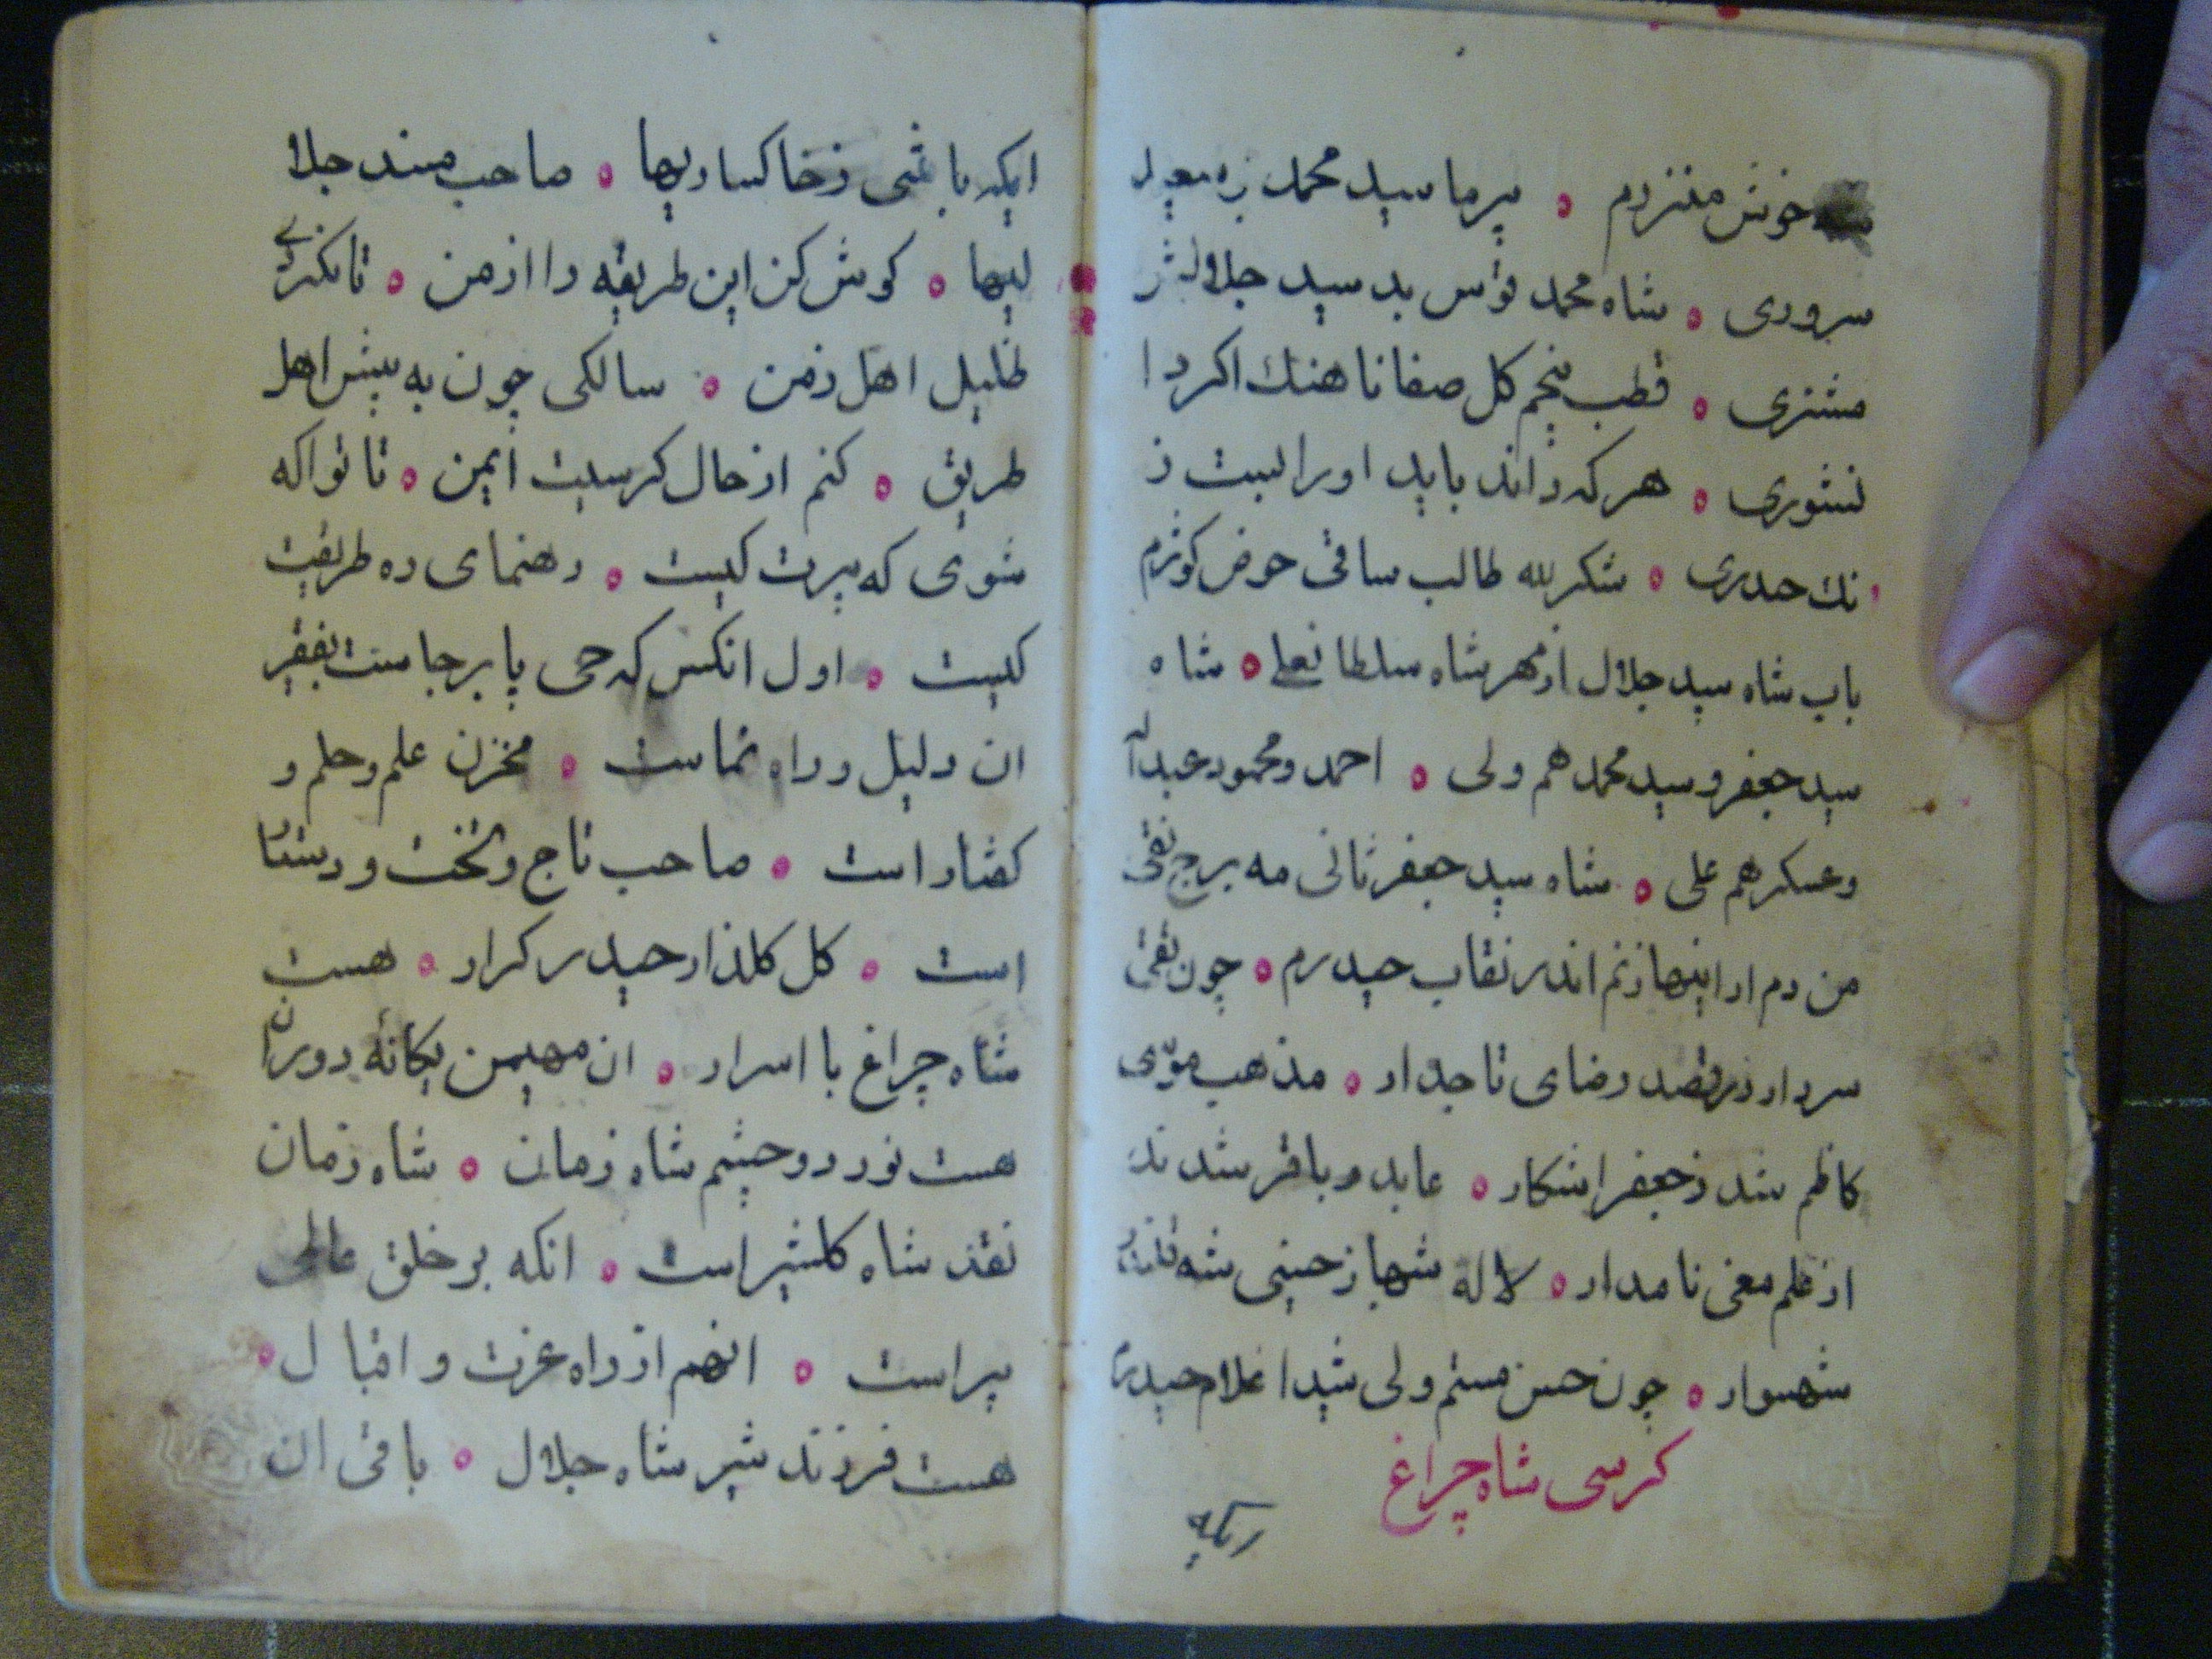 خوش منزدم ه پرما سید محمد
سروری ه شاه محمد بد سید جلال
مشتری ه قطب پنجم کل صفانا هنك اکر
نشوری ه هرکه داند باید اورا لیست ز
حیدری ه شکر لله طالب ساقی حوض کوثرم
باب شاه سید جلال از مهر شاه سلطانعلی ه شاه
سید جعفر و سید محمد هم ولی ه احمد و محمود
و عسکر هم علی ه شاه سید جعفر ثانی مه برج نقی
من دم از اینها زنم اندر نقاب حیدرم ه چون تقی
سردار رضای تاجدار ه مذهب موسی
کاظم شد ز جعفر اشکار ه عابد و باقر شدند
از علم معنی نامدار ه لاله شهباز حسینی شه
شهسوار ه چون حسن مستم ولی شیدا غلام حیدرم
کرسی شاه چراغ
ایکه باشی ز خاکساریها ه صاحب مسند جلا
لیها ه کوش کن این طریقه را از من ه تا نکردی
ظلیل اهل زمن ه سالکی چون به پیش اهل
طریق ه کنم از حال کرسیت ایمن ه تا تو اکه
شوی که پیرت کیست ه رهنمای ره طریقت
کیست ه اول انکس که حی پا برجاست بفقر
ان دلیل و راه نماست ه مخزن علم و حلم و
کفتار است ه صاحب تاج و تخت و دستار
است ه کل کلذار حیدر کرار ه هست
شاه چراغ با اسرار ه ان مهیمن یکانه دوران
هست نور دو چشم شاه زمان ه شاه زمان
نقد شاه کلشیر است ه انکه بر خلق عالمی
پیر است ه انهم از راه عزت و اقبال ه
هست فرزند شیر شاه جلال ه باقی ان